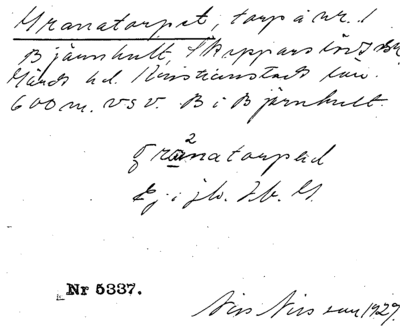 Granatorpet, torp å nr. 1
Bjärnhult, Skepparslövs sn
Gärds hd. Kristianstads län.
600 m. VSV. B i Bjärnhult.
granatorped
Ej i jb. Jb. G.
Nr 5337.
Nils Nilsson 1929.